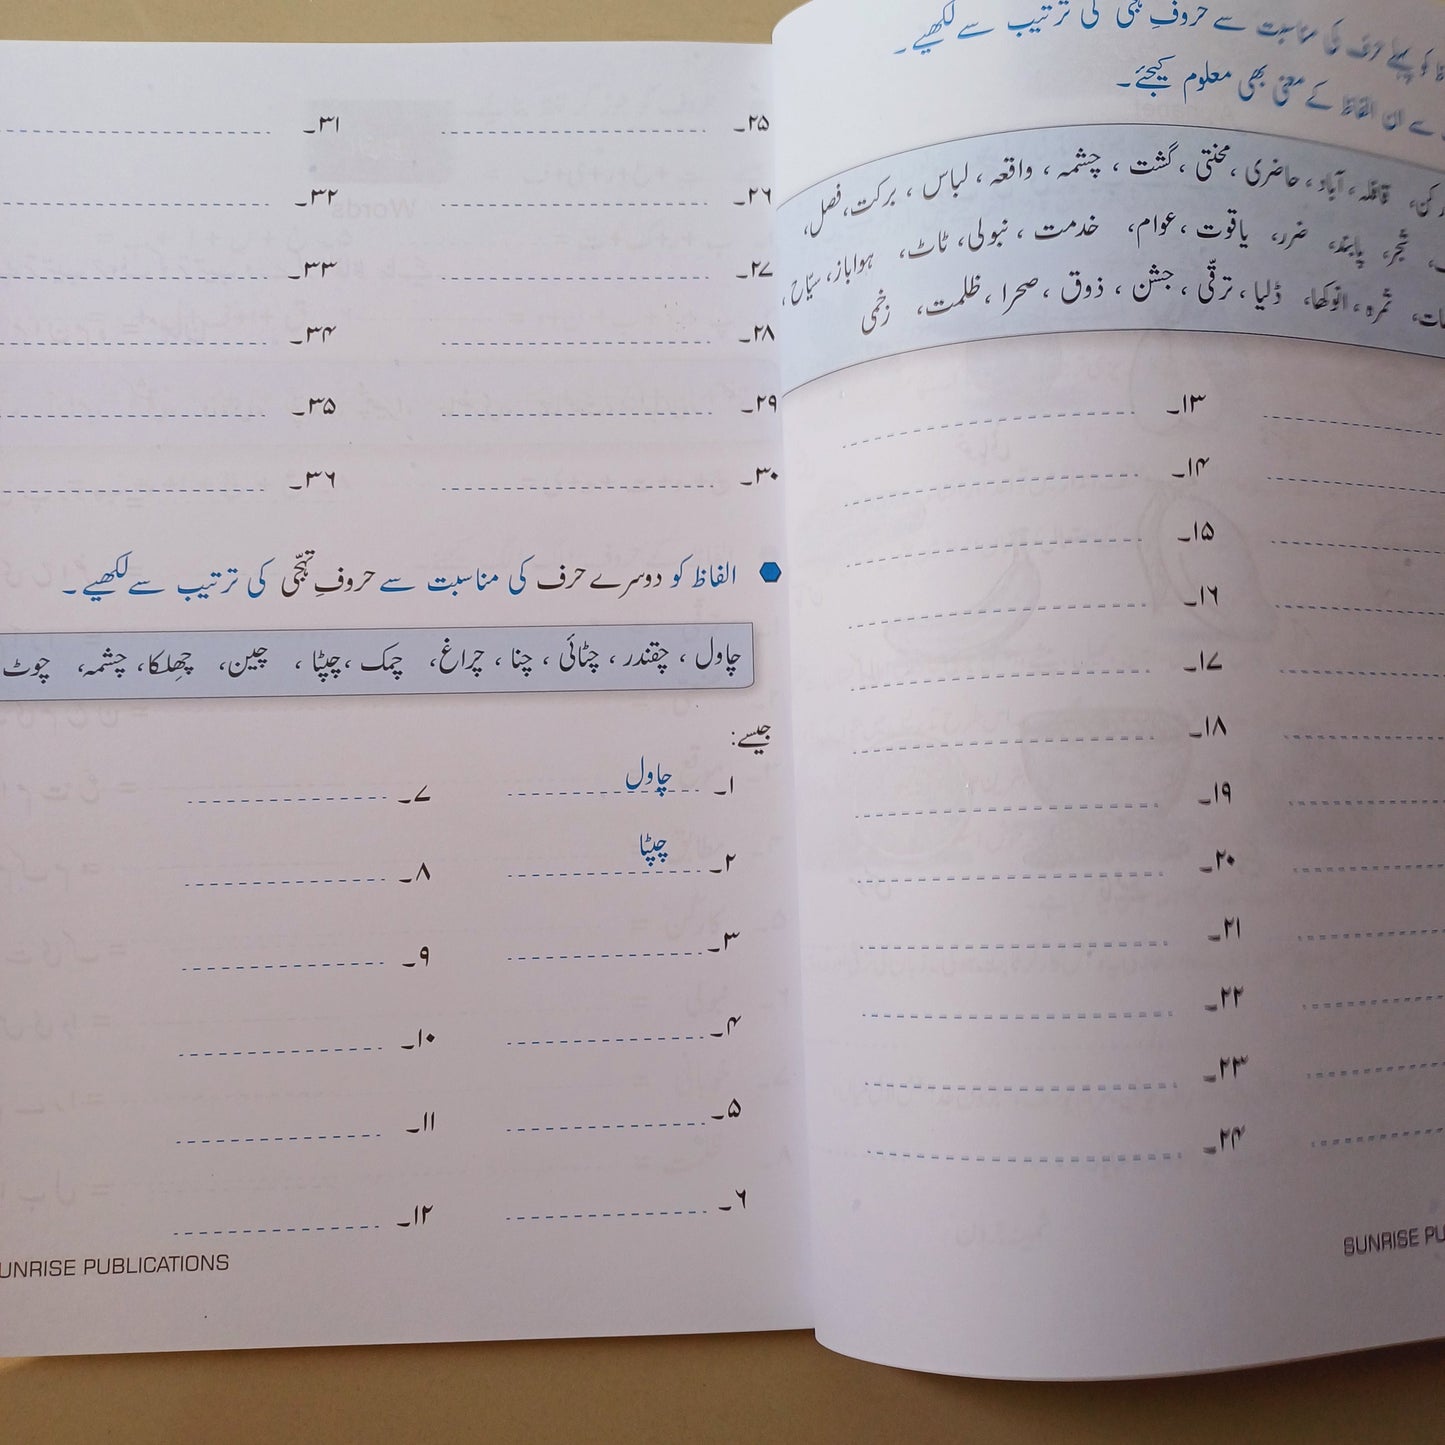 حروفِ تہجّی کی ترتیب سے لکھیے۔
سے ان الفاظ کے معنی بھی معلوم کیجئے۔
قافلہ، آباد، حاضری، محنتی، گشت، چشمہ، واقعہ، لباس، برکت، فصل،
شجر، پابند، ضرر، یاقوت، عوام، خدمت، نبولی، ٹاٹ، ہواباز، سیّاح،
ثمرہ، انوکھا، ڈلیا، ترقّی، جشن، ذوق، صحرا، ظلمت، زخمی
۱۳۔
۱۴۔
۱۵۔
۱۶۔
۱۷۔
۱۸۔
۱۹۔
۲۰۔
۲۱۔
۲۲۔
۲۳۔
۲۴۔
SUNRISE PU
۲۵۔ ۳۱۔
۲۶۔ ۳۲۔
۲۷۔ ۳۳۔
۲۸۔ ۳۴۔
۲۹۔ ۳۵۔
۳۰۔ ۳۶۔
الفاظ کو دوسرے حرف کی مناسبت سے حروفِ تہجّی کی ترتیب سے لکھیے۔
چاول، چقندر، چٹائی، چنا، چراغ، چمک، چپٹا، چین، چھلکا، چشمہ، چوٹ
جیسے:
۱۔ چاول ۷۔
۲۔ چپٹا ۸۔
۳۔ ۹۔
۴۔ ۱۰۔
۵۔ ۱۱۔
۶۔ ۱۲۔
UNRISE PUBLICATIONS